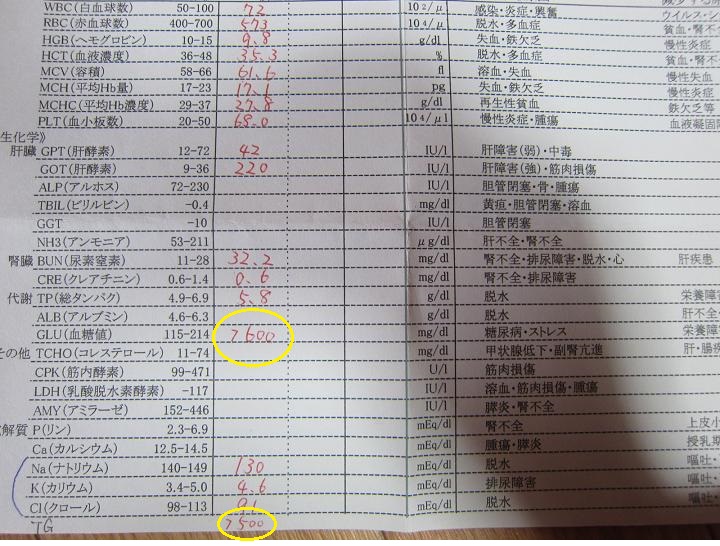 WBC(白血球数) 50-100 72 10²/μl 感染・炎症・興奮
RBC(赤血球数) 400-700 573 10⁴/μl 脱水・多血症 ウイルス・シ
HGB(ヘモグロビン) 10-15 9.8 g/dl 失血・鉄欠乏 貧血・腎不
HCT(血液濃度) 36-48 35.3 % 脱水・多血症 慢性炎症
MCV(容積) 58-66 61.6 fl 溶血・失血 貧血・腎不
MCH(平均Hb量) 17-23 17.1 pg 失血・鉄欠乏 慢性失血
MCHC(平均Hb濃度) 29-37 27.8 g/dl 再生性貧血 慢性炎症
PLT(血小板数) 20-50 68.0 10⁴/μl 慢性炎症・腫瘍 鉄欠乏等
血液凝固
生化学》
肝臓 GPT(肝酵素) 12-72 42 IU/l 肝障害(弱)・中毒
GOT(肝酵素) 9-36 220 IU/l 肝障害(強)・筋肉損傷
ALP(アルホス) 72-230 IU/l 胆管閉塞・骨・腫瘍
TBIL(ビリルビン) -0.4 mg/dl 黄疸・胆管閉塞・溶血
GGT -10 IU/l 胆管閉塞
NH3(アンモニア) 53-211 μg/dl 肝不全・腎不全
腎臓 BUN(尿素窒素) 11-28 32.2 mg/dl 腎不全・排尿障害・脱水・心 肝疾患
CRE(クレアチニン) 0.6-1.4 0.6 mg/dl 腎不全・排尿障害
代謝 TP(総タンパク) 4.9-6.9 5.8 g/dl 脱水 栄養障
ALB(アルブミン) 4.6-6.3 g/dl 脱水 肝不全
GLU(血糖値) 115-214 7600 mg/dl 糖尿病・ストレス 栄養障
その他 TCHO(コレステロール) 11-74 mg/dl 甲状腺低下・副腎亢進 肝・腸疾
CPK(筋内酵素) 99-471 U/l 筋肉損傷
LDH(乳酸脱水素酵素) -117 IU/l 溶血・筋肉損傷・腫瘍
AMY(アミラーゼ) 152-446 IU/l 膵炎・腎不全
解質 P(リン) 2.3-6.9 mEq/dl 腎不全 上皮小
Ca(カルシウム) 12.5-14.5 mEq/dl 腫瘍・膵炎 授乳期
Na(ナトリウム) 140-149 130 mEq/dl 脱水 嘔吐・
K(カリウム) 3.4-5.0 4.6 mEq/dl 排尿障害 嘔吐・
Cl(クロール) 98-113 91 mEq/dl 脱水 嘔吐・
TG 7500